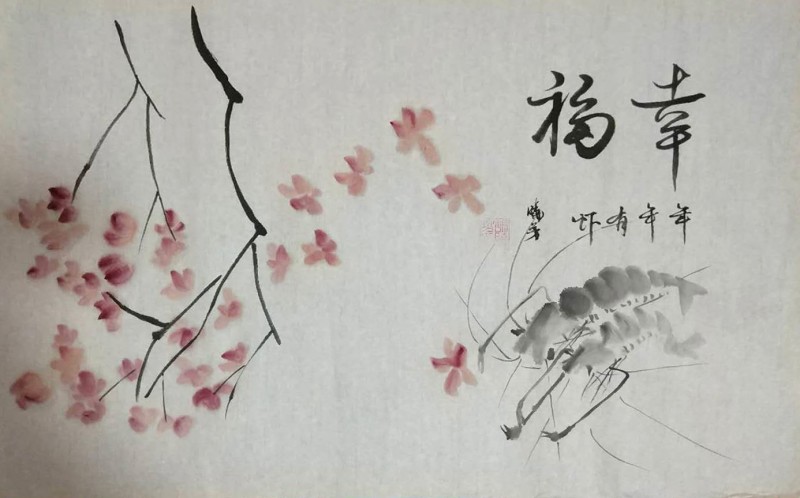 幸福
年年有虾